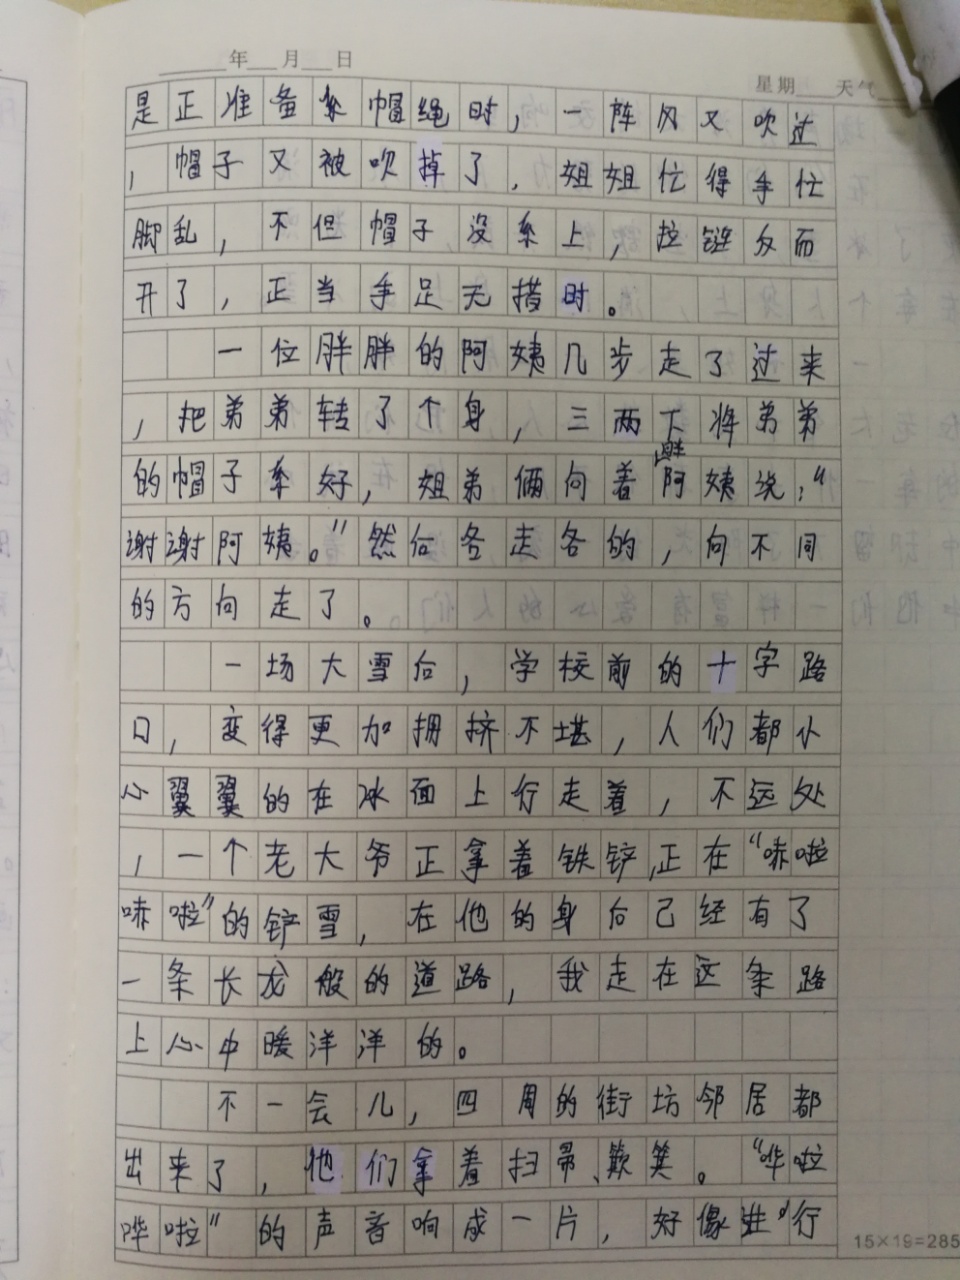 年 月 日
星期 天气
是正准备系帽绳时，一阵风又吹过
，帽子又被吹掉了，姐姐忙得手忙
脚乱，不但帽子没系上，拉链反而
开了，正当手足无措时。
一位胖胖的阿姨几步走了过来
，把弟弟转了个身，三两下将弟弟
的帽子系好，姐弟俩向着阿姨说：“
谢谢阿姨。”然后各走各的，向不同
的方向走了。
一场大雪后，学校前的十字路
口，变得更加拥挤不堪，人们都小
心翼翼的在冰面上行走着，不远处
，一个老大爷正拿着铁铲，正在“哧啦
哧啦”的铲雪，在他的身后已经有了
一条长龙般的道路，我走在这条路
上心中暖洋洋的。
不一会儿，四周的街坊邻居都
出来了，他们拿着扫帚、簸箕。“哗啦
哗啦”的声音响成一片，好像进行
15×19=285